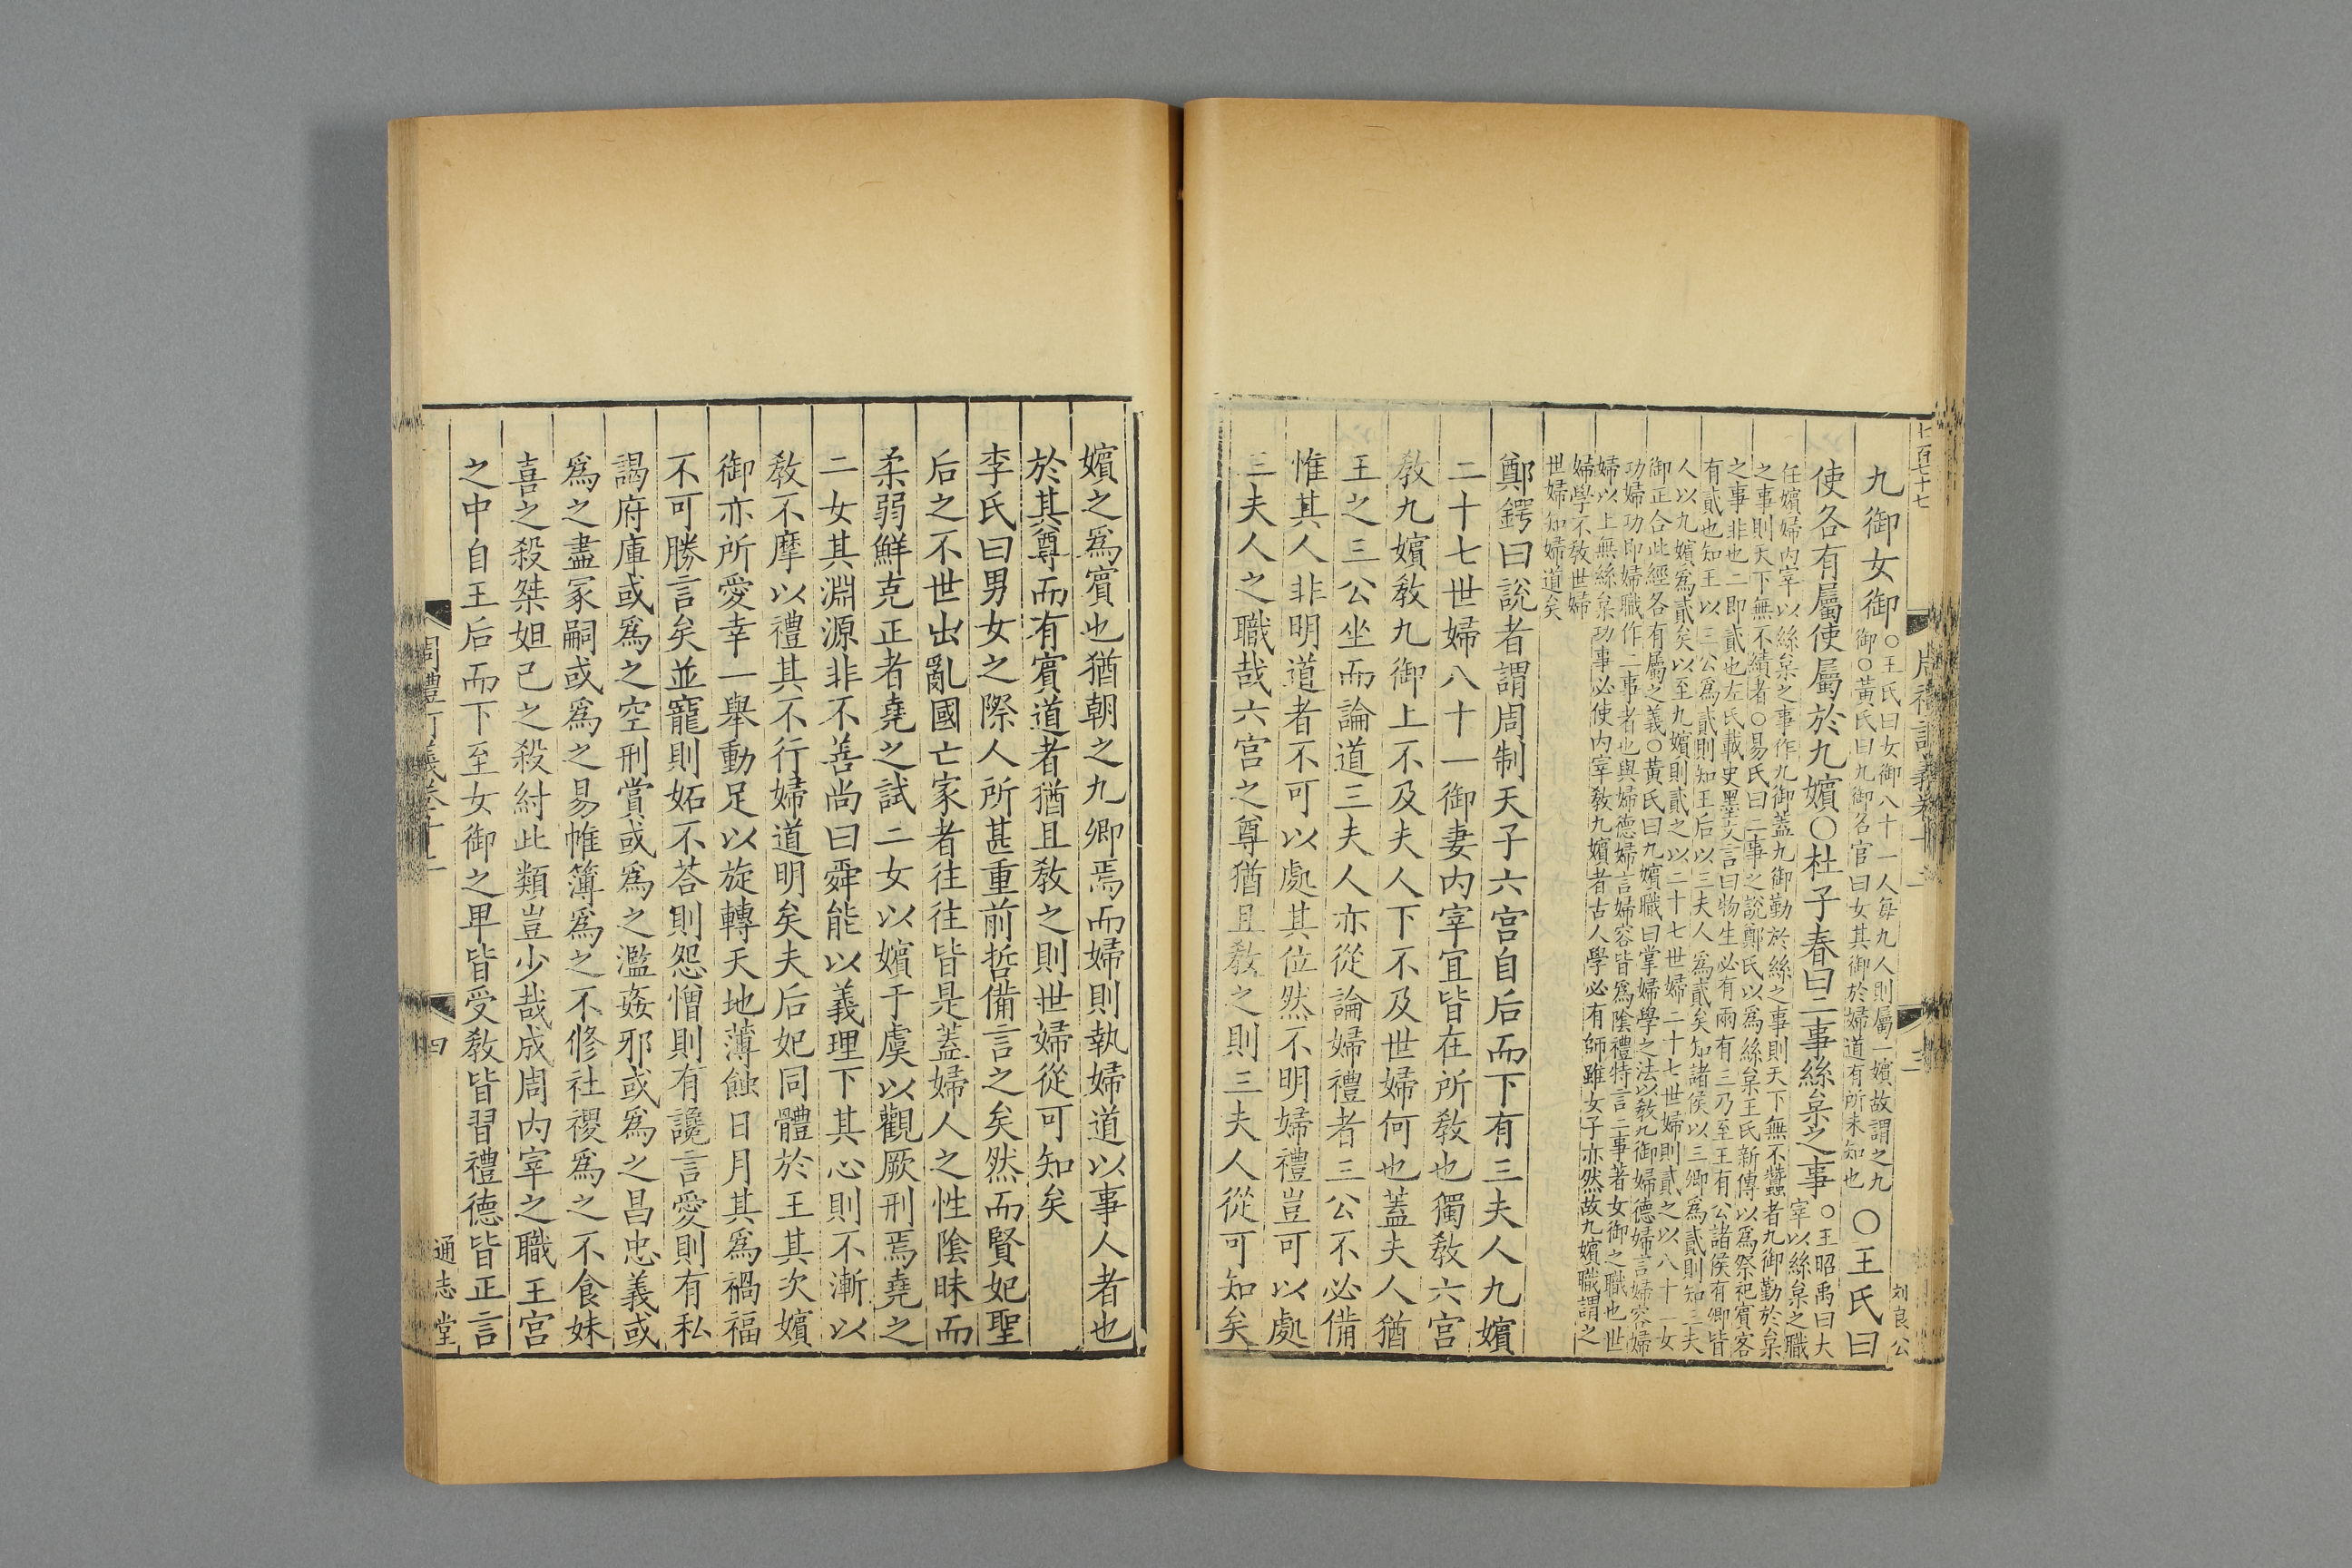 七百七十七
九御女御
○王氏曰女御八十一人每九人則屬一嬪故謂之九
御○黃氏曰九御各官曰女其御於婦道有所未知也
○王氏曰
使各有屬使屬於九嬪○杜子春曰二事絲枲之事
○王昭禹曰大
宰以絲枲之職
任嬪婦内宰以絲枲之事作九御蓋九御勤於絲之事則天下無不蠶者九御勤於枲
之事則天下無不績者○易氏曰二事之説鄭氏以爲絲枲王氏新傳以爲祭祀賓客
之事非也二即貳也左氏載史墨之言曰物生必有兩有三乃至王有公諸侯有卿皆
有貳也知王以三公爲貳則知王后以三夫人爲貳矣知諸侯以三卿爲貳則知三夫
人以九嬪爲貳矣以至九嬪則貳之以二十七世婦二十七世婦則貳之以八十一女
御正合此經各有屬之義○黃氏曰九嬪職曰掌婦學之法以敎九御婦德婦言婦容婦
功婦功即婦職作二事者也與婦德婦言婦容皆爲陰禮特言二事著女御之職也世
婦以上無絲枲功事必使内宰敎九嬪者古人學必有師雖女子亦然故九嬪職謂之
婦學不敎世婦
世婦知婦道矣
鄭鍔曰說者謂周制天子六宮自后而下有三夫人九嬪
二十七世婦八十一御妻内宰宜皆在所敎也獨敎六宮
敎九嬪敎九御上不及夫人下不及世婦何也蓋夫人猶
王之三公坐而論道三夫人亦從論婦禮者三公不必備
惟其人非明道者不可以處其位然不明婦禮豈可以處
三夫人之職哉六宮之尊猶且敎之則三夫人從可知矣
劉良公
嬪之爲賓也猶朝之九卿焉而婦則執婦道以事人者也
於其尊而有賓道者猶且敎之則世婦從可知矣
李氏曰男女之際人所甚重前哲備言之矣然而賢妃聖
后之不世出亂國亡家者往往皆是蓋婦人之性陰昧而
柔弱鮮克正者堯之試二女以嬪于虞以觀厥刑焉堯之
二女其淵源非不善尚曰舜能以義理下其心則不漸以
敎不摩以禮其不行婦道明矣夫后妃同體於王其次嬪
御亦所愛幸一舉動足以旋轉天地薄蝕日月其爲禍福
不可勝言矣並寵則妬不荅則怨憎則有讒言愛則有私
謁府庫或爲之空刑賞或爲之濫姦邪或爲之昌忠義或
爲之盡冢嗣或爲之易帷簿爲之不修社稷爲之不食妹
喜之殺桀妲己之殺紂此類豈少哉成周内宰之職王宮
之中自王后而下至女御之卑皆受敎皆習禮德皆正言
周禮訂義卷十二
四
通志堂